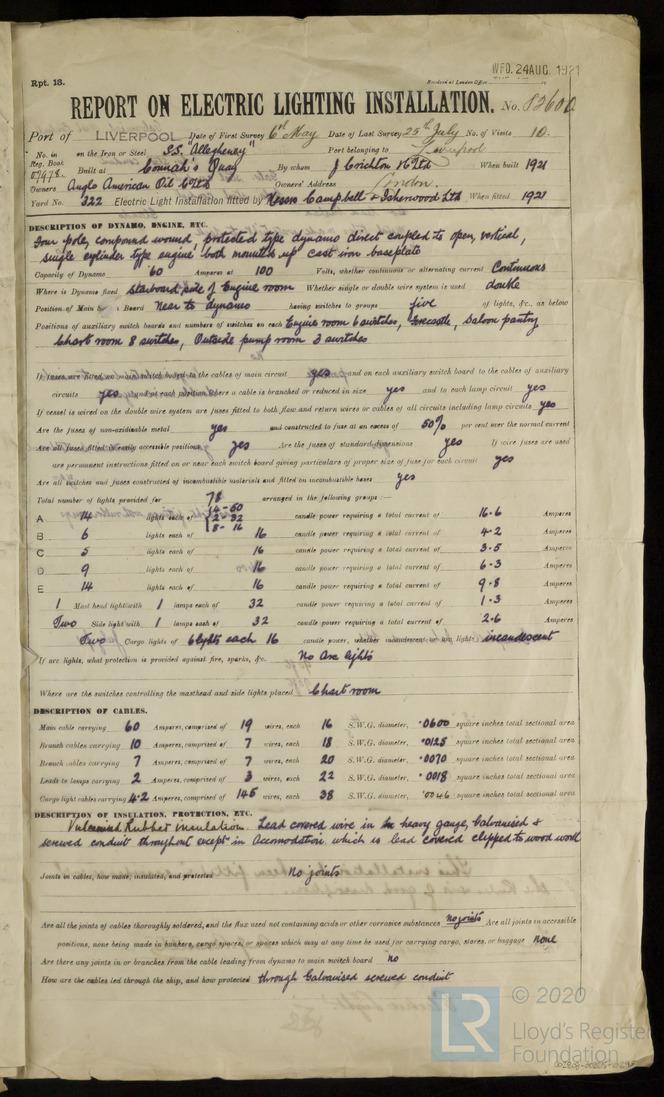 Rpt. 13.
Received at London Office
WED. 24 AUG. 1921
REPORT ON ELECTRIC LIGHTING INSTALLATION. No. 82600
Port of LIVERPOOL Date of First Survey 6th May Date of Last Survey 25th July No. of Visits 10.
No. in Reg. Book on the Iron or Steel S.S. "Allegheny" Port belonging to Liverpool
Built at Connah's Quay By whom J Crichton & Co Ltd When built 1921
Owners Anglo American Oil Co Ltd Owners' Address London.
Yard No. 322 Electric Light Installation fitted by Messrs Campbell & Isherwood Ltd When fitted 1921
DESCRIPTION OF DYNAMO, ENGINE, ETC.
Four pole, compound wound, protected type dynamo direct coupled to open, vertical,
single cylinder type engine both mounted up cast iron baseplate
Capacity of Dynamo 60 Amperes at 100 Volts, whether continuous or alternating current Continuous
Where is Dynamo fixed Starboard side of Engine room Whether single or double wire system is used double
Position of Main Switch Board Near to dynamo having switches to groups five of lights, &c., as below
Positions of auxiliary switch boards and numbers of switches on each Engine room 6 switches, Forecastle, Saloon pantry
Chart room 8 switches, Outside pump room 3 switches
If fuses are fitted on main switch board to the cables of main circuit yes and on each auxiliary switch board to the cables of auxiliary
circuits yes and at each position where a cable is branched or reduced in size yes and to each lamp circuit yes
If vessel is wired on the double wire system are fuses fitted to both flow and return wires or cables of all circuits including lamp circuits yes
Are the fuses of non-oxidizable metal yes and constructed to fuse at an excess of 50% per cent over the normal current
Are all fuses fitted in easily accessible positions yes Are the fuses of standard dimensions yes If wire fuses are used
are permanent instructions fitted on or near each switch board giving particulars of proper size of fuse for each circuit yes
Are all switches and fuses constructed of incombustible materials and fitted on incombustible bases yes
Total number of lights provided for 78 arranged in the following groups :—
A 14 lights each of { 4 - 50 2 - 32 8 - 16 candle power requiring a total current of 16.6 Amperes
B 6 lights each of 16 candle power requiring a total current of 4.2 Amperes
C 5 lights each of 16 candle power requiring a total current of 3.5 Amperes
D 9 lights each of 16 candle power requiring a total current of 6.3 Amperes
E 14 lights each of 16 candle power requiring a total current of 9.8 Amperes
1 Mast head light with 1 lamps each of 32 candle power requiring a total current of 1.3 Amperes
Two Side light with 1 lamps each of 32 candle power requiring a total current of 2.6 Amperes
Two Cargo lights of 6 lights each 16 candle power, whether incandescent or arc lights incandescent
If arc lights, what protection is provided against fire, sparks, &c. No Arc lights
Where are the switches controlling the masthead and side lights placed Chart room
DESCRIPTION OF CABLES.
Main cable carrying 60 Amperes, comprised of 19 wires, each 16 S.W.G. diameter, .0600 square inches total sectional area
Branch cables carrying 10 Amperes, comprised of 7 wires, each 18 S.W.G. diameter, .0125 square inches total sectional area
Branch cables carrying 7 Amperes, comprised of 7 wires, each 20 S.W.G. diameter, .0070 square inches total sectional area
Leads to lamps carrying 2 Amperes, comprised of 3 wires, each 22 S.W.G. diameter, .0018 square inches total sectional area
Cargo light cables carrying 4.2 Amperes, comprised of 145 wires, each 38 S.W.G. diameter, .0046 square inches total sectional area
DESCRIPTION OF INSULATION, PROTECTION, ETC.
Vulcanised Rubber insulation. Lead covered wire in heavy gauge, Galvanised &
screwed conduit throughout except in Accomodation which is lead covered clipped to wood work
Joints in cables, how made, insulated, and protected No joints
Are all the joints of cables thoroughly soldered, and the flux used not containing acids or other corrosive substances No joints Are all joints in accessible
positions, none being made in bunkers, cargo spaces, or spaces which may at any time be used for carrying cargo, stores, or baggage none
Are there any joints in or branches from the cable leading from dynamo to main switch board no
How are the cables led through the ship, and how protected through Galvanised screwed conduit
LR
© 2020
Lloyd's Register
Foundation